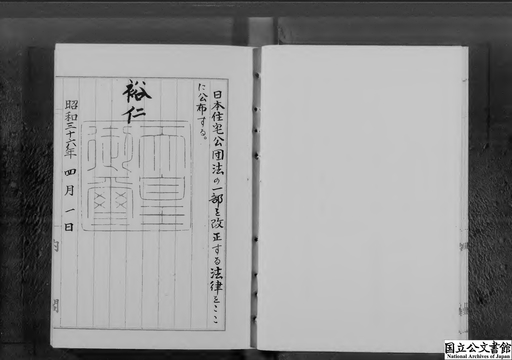 日本住宅公団法の一部を改正する法律をここ
に公布する。
裕仁
天皇
御璽
昭和三十六年四月一日
国立公文書館
National Archives of Japan